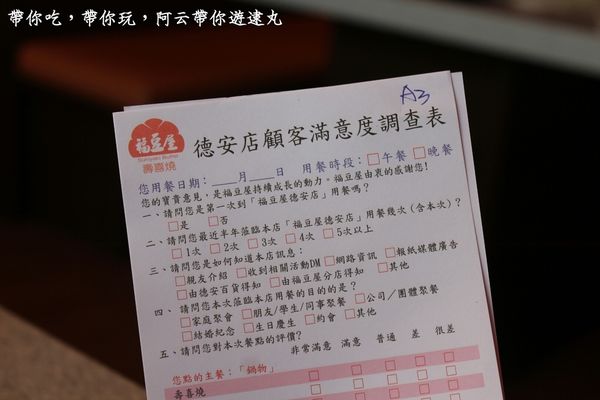 帶你吃，帶你玩，阿云帶你遊逮丸
A3
福豆屋
壽喜燒
德安店顧客滿意度調查表
您用餐日期：____月____日 用餐時段：□午餐 □晚餐
您的寶貴意見，是福豆屋持續成長的動力。福豆屋由衷的感謝您!
一、請問您是第一次到「福豆屋德安店」用餐嗎？
□是 □否
二、請問您最近半年蒞臨本店「福豆屋德安店」用餐幾次(含本次)？
□1次 □2次 □3次 □4次 □5次以上
三、請問您是如何知道本店訊息：
□親友介紹 □收到相關活動DM □網路資訊 □報紙媒體廣告
□由德安百貨得知 □由福豆屋分店得知 □其他
四、請問您本次蒞臨本店用餐的目的的是？
□家庭聚會 □朋友/學生/同事聚餐 □公司／團體聚餐
□結婚紀念 □生日慶生 □約會 □其他
五、請問您對本次餐點的評價？
非常滿意 滿意 普通 差 很差
您點的主餐：「鍋物」
壽喜燒